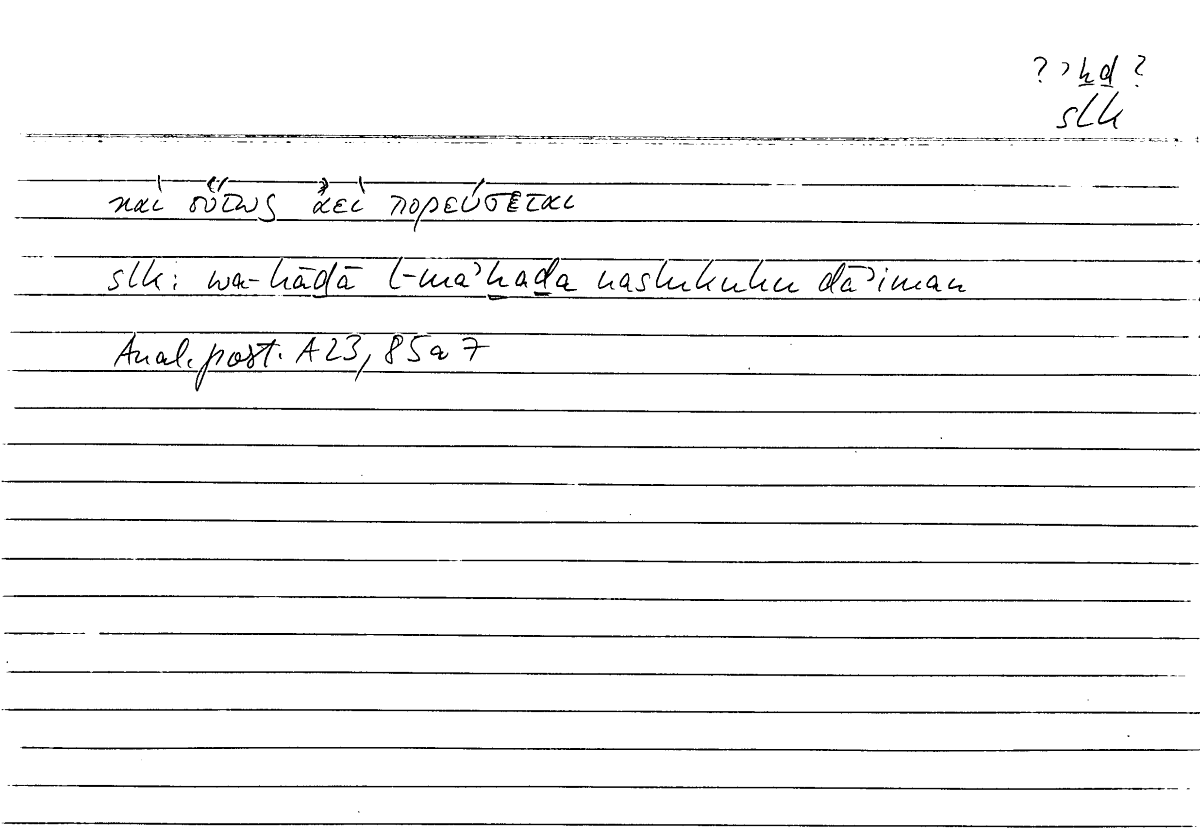 ? ʾḫḏ ?
slk
καὶ οὕτως ἀεὶ πορεύσεται
slk: wa-hāḏā l-maʾḫaḏa naslukuhu dāʾiman
Anal. post. A 23, 85 a 7